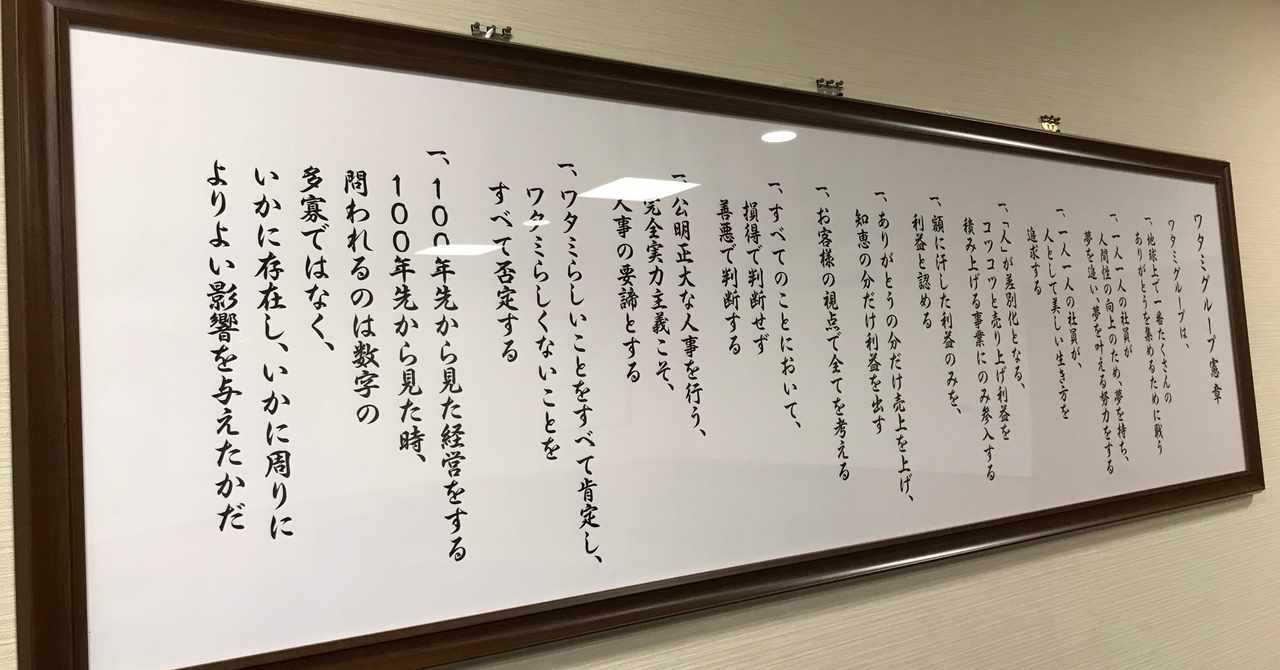 ワタミグループ憲章
ワタミグループは、
一、地球上で一番たくさんの
ありがとうを集めるために戦う
一、一人一人の社員が
人間性の向上のため、夢を持ち、
夢を追い、夢を叶える努力をする
一、一人一人の社員が、
人として美しい生き方を
追求する
一、「人」が差別化となる、
コツコツと売り上げ利益を
積み上げる事業にのみ参入する
一、額に汗した利益のみを、
利益と認める
一、ありがとうの分だけ売上を上げ、
知恵の分だけ利益を出す
一、お客様の視点で全てを考える
一、すべてのことにおいて、
損得で判断せず
善悪で判断する
一、公明正大な人事を行う、
完全実力主義こそ、
人事の要諦とする
一、ワタミらしいことをすべて肯定し、
ワタミらしくないことを
すべて否定する
一、100年先から見た経営をする
100年先から見た時、
問われるのは数字の
多寡ではなく、
いかに存在し、いかに周りに
よりよい影響を与えたかだ